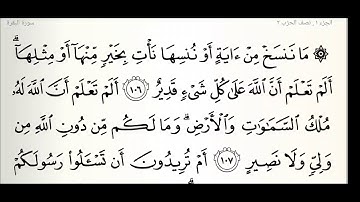 الجزء ١ ، نصف الحزب ٢
سورة البقرة
۞ مَا نَنسَخْ مِنْ ءَايَةٍ أَوْ نُنسِهَا نَأْتِ بِخَيْرٍ مِّنْهَآ أَوْ مِثْلِهَآ ۗ
أَلَمْ تَعْلَمْ أَنَّ ٱللَّهَ عَلَىٰ كُلِّ شَىْءٍ قَدِيرٌ ١٠٦ أَلَمْ تَعْلَمْ أَنَّ ٱللَّهَ لَهُۥ
مُلْكُ ٱلسَّمَـٰوَٰتِ وَٱلْأَرْضِ ۗ وَمَا لَكُم مِّن دُونِ ٱللَّهِ مِن
وَلِىٍّ وَلَا نَصِيرٍ ١٠٧ أَمْ تُرِيدُونَ أَن تَسْـَٔلُوا۟ رَسُولَكُمْ